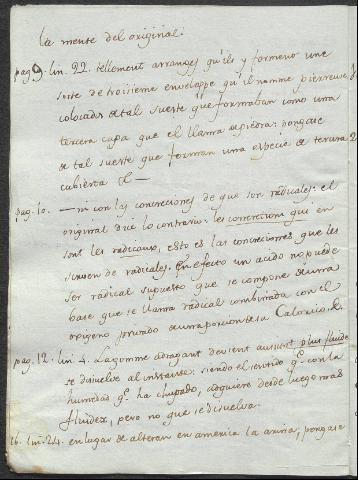 la mente del original:
pag 9. lin. 22. tellement arranges qu'ils y forment une
sorte de troisieme enveloppe qu'il nomme pierreuse,
colocadas de tal suerte que formaban como una
tercera capa que el llama de piedra: pongase
de tal suerte que forman una especie de tercera
cubierta &—
pag. 10. — ni con las concreciones de que son radicales: el
original dice lo contrario: les concretions qui en
sont les radicaux, esto es las concreciones que les
sirven de radicales. En efecto un acido no puede
ser radical supuesto que se compone de una
base que se llama radical combinada con el
oxigeno privado de una porcion de su Calorico. &.
pag. 12. lin. 4. La gomme adragant devient aussitot plus fluide
se disuelve al instante: siendo el sentido q.e con la
humedad q.e ha chupado, adquiere desde luego mas
fluidez, pero no que se disuelva.
16. lin. 24. en lugar de alteran en america la arina; pongase